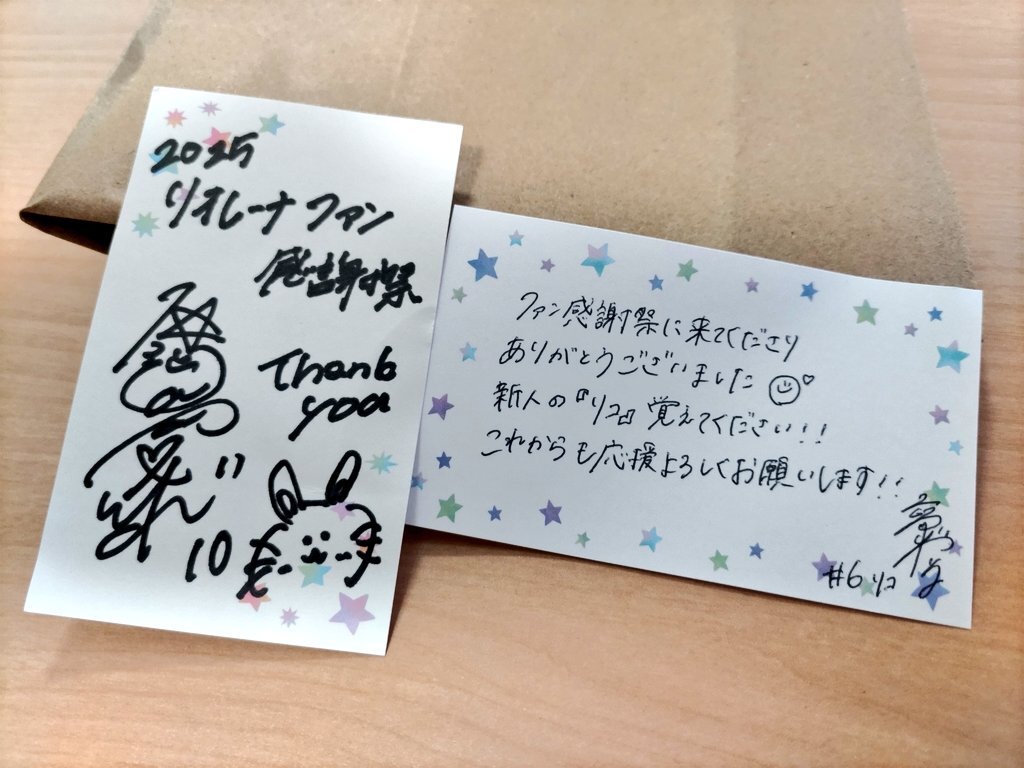 2025
リオレーナ ファン
感謝祭
Thank
you
10
ファン感謝祭に来てくださり
ありがとうございました
新人の『リコ』覚えてください!!
これからも応援よろしくお願いします!!
#6 リコ